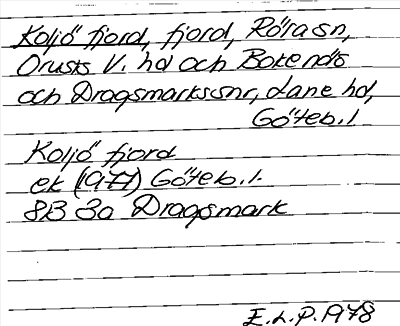 Koljö fjord, fjord, Röra sn,
Orusts V. hd och Bokenäs
och Dragsmarks snr, Lane hd,
Göteb.l.
Koljö fjord
ek (1977) Göteb.l.
8B 3a Dragsmark
E.L.P. 1978